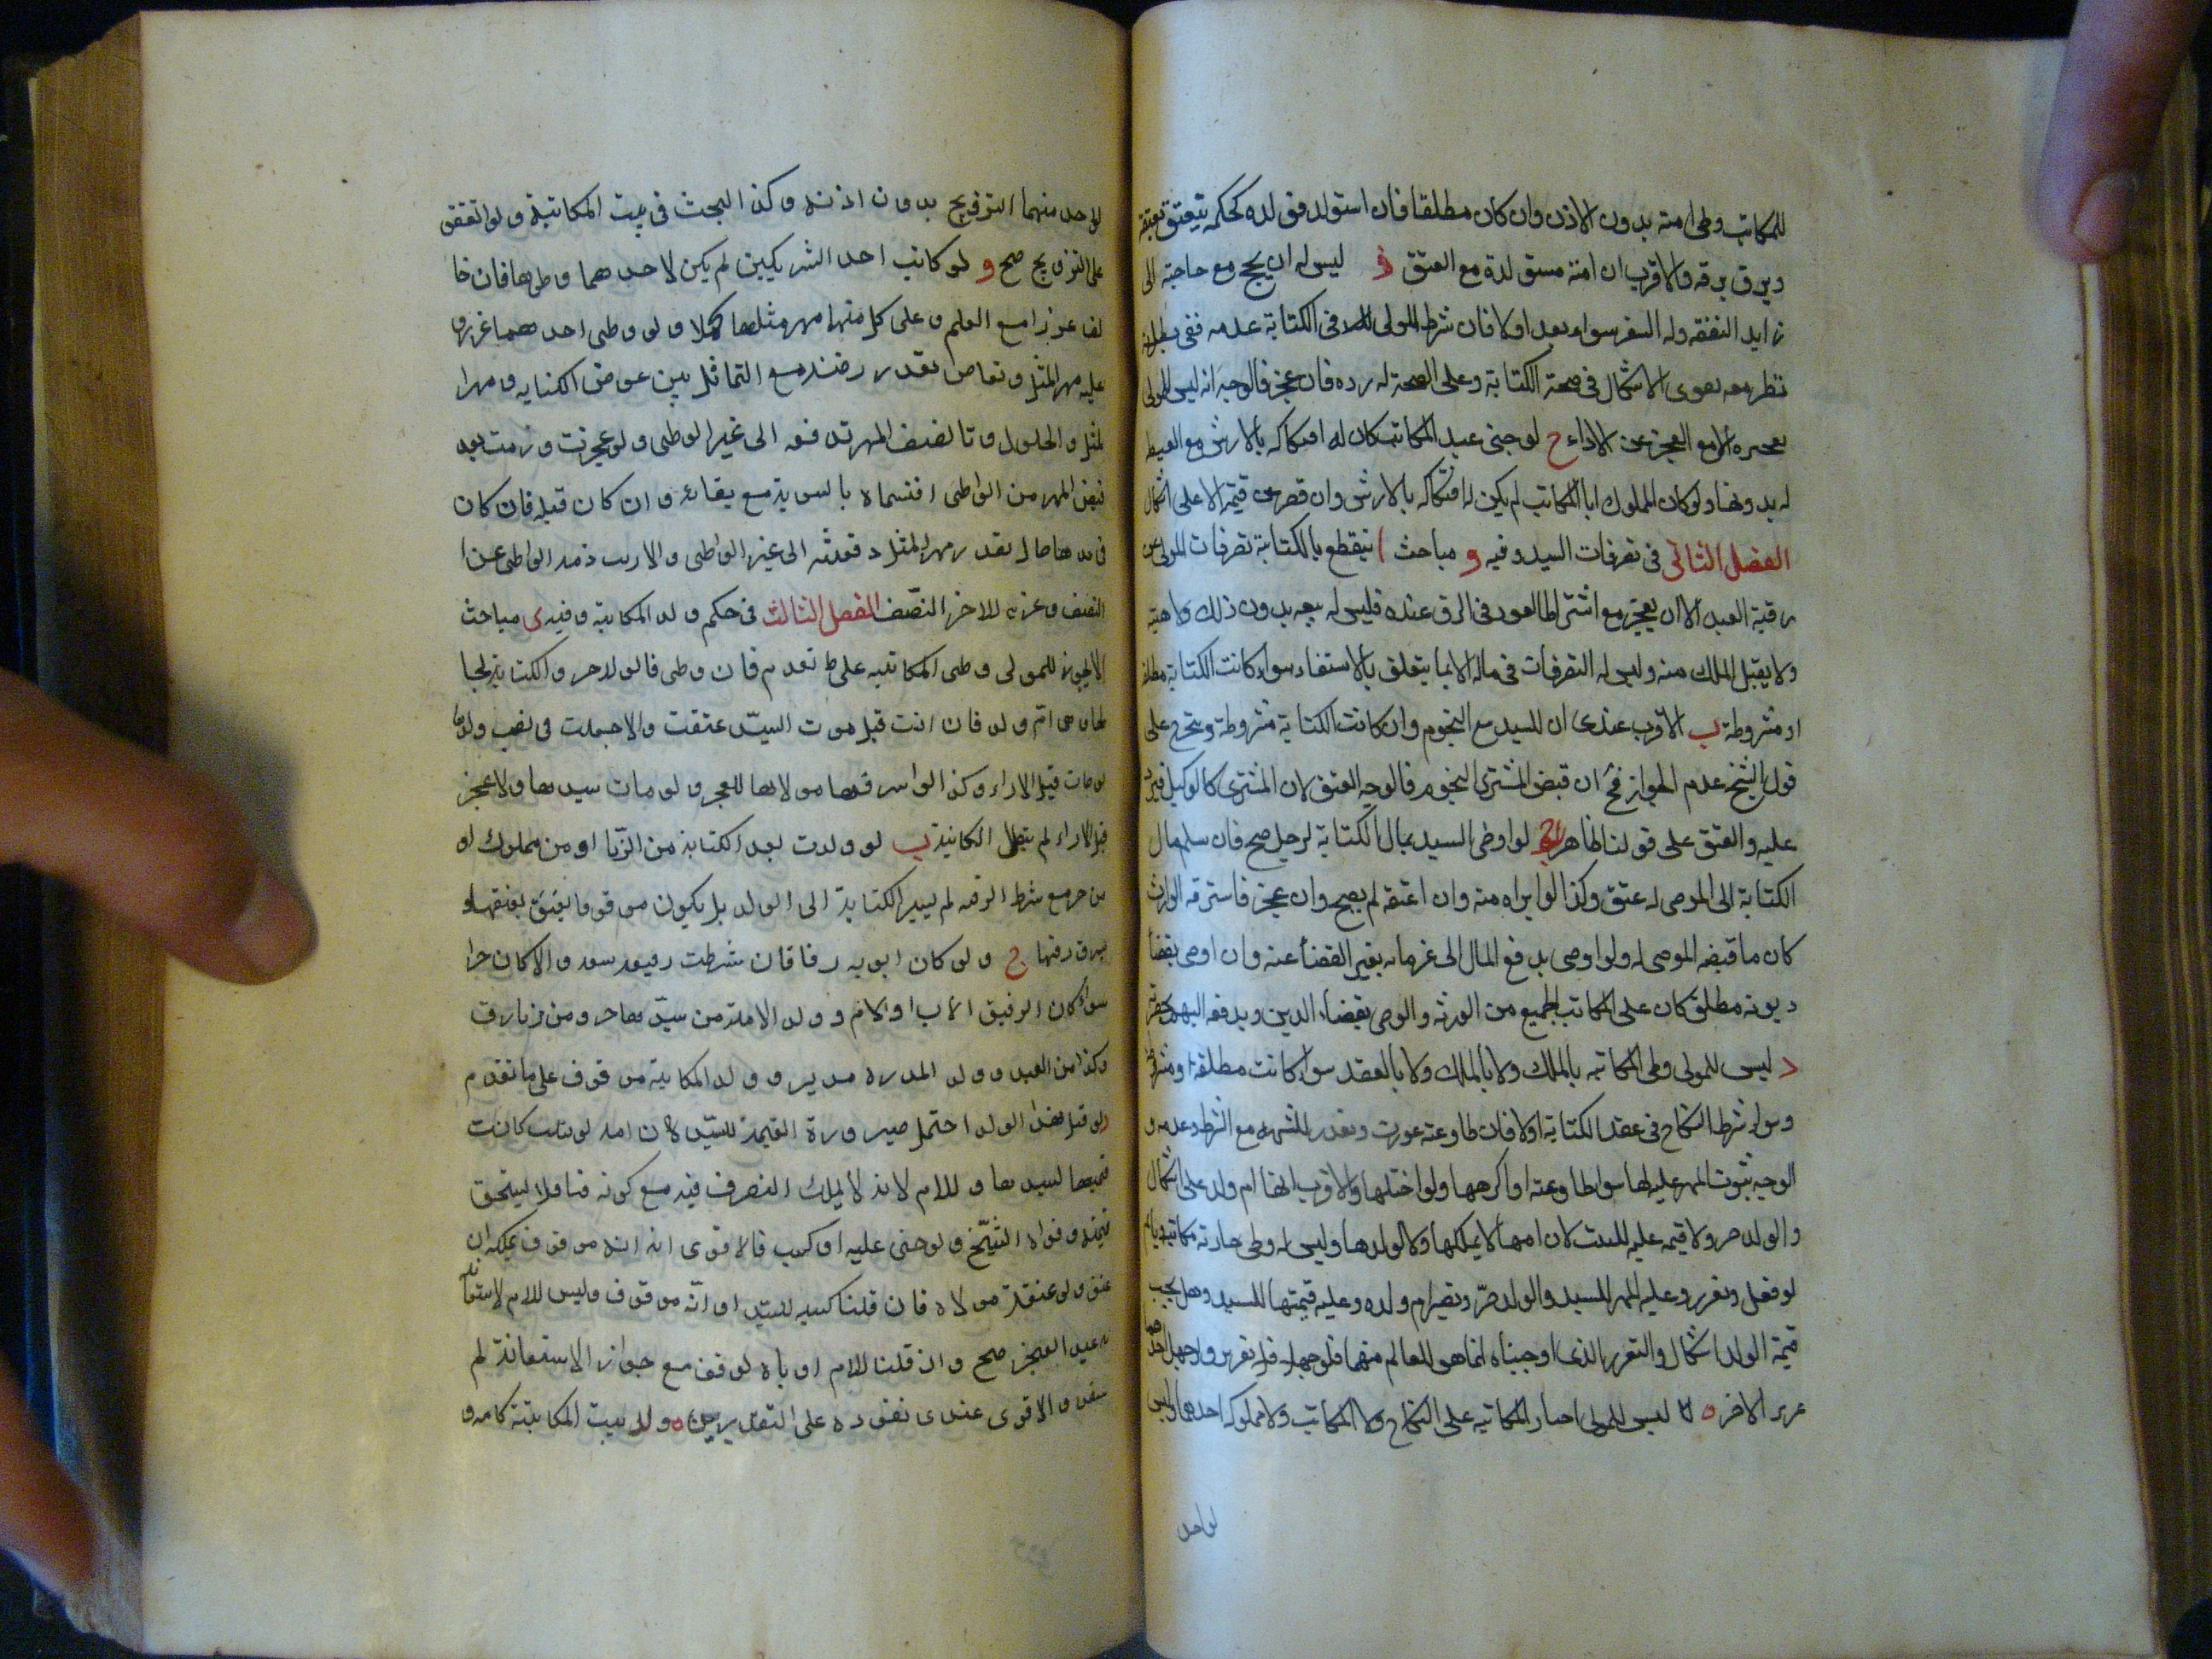 للمكاتب وطى امته بدون الاذن وان كان مطلقا فان استولد فولده كحكمه يتعتق بعتقه
ويرق برقه والاقرب ان امته مستولدة مع العتق ز ليس له ان يحج مع حاجته الى
زايد النفقه وله السفر سواء بعد اولا فان شرط المولى فى الكتابة عدمه ففى بطلانه
نظر معه يقوى الاشكال فى صحة الكتابة وعلى الصحة له رده فان عجز فالوجه انه ليس للمولى
الامع العجز عن الاداء ح لو جنى عبد المكاتب كان له افتكاكه بالارش مع الغبطة
له بدونها ولو كان المملوك ابا المكاتب لم يكن له افتكاكه بالارش وان قصر عن قيمته الا على اشكال
الفصل الثانى فى تصرفات السيد وفيه و مباحث ا ينقطع بالكتابة تصرفات المولى عن
رقبة العبد الا ان يعجز مع اشتراط العود فى الرق عنده فليس له بيعه بدون ذلك ولا هبته
ولا يقبل الملك منه وليس له التصرفات فى ماله الا بما يتعلق بالاستيفاء سواء كانت الكتابة مطلقة
او مشروطة ب الاقرب عندى ان للسيد بيع النجوم وان كانت الكتابة مشروطة ويخرج على
قول الشيخ عدم الجواز فح ان قبض المشترى النجوم فالوجه العتق لان المشترى كالوكيل فيرد
عليه والعتق على قولنا ظاهر ج لو اوصى السيد بمال الكتابة لرجل صح فان سلم مال
الكتابة الى الموصى له عتق وكذا لو ابراه منه وان اعتقه لم يصح وان عجز فاسترقه الوارث
كان ما قبضه الموصى له ولو اوصى بدفع المال الى غرمائه بقبر القضا عنه وان اوصى بقضا
ديونه مطلق كان على المكاتب الجميع من الورثه والوصى بقضاء الدين ويدفعه اليهم بحضرته
د ليس للمولى وطى المكاتبه بالملك ولا بالعقد سواء كانت مطلقة او مشروطة
وسواء شرط النكاح فى عقد الكتابة اولا فان طاوعته عزرت وتعذر للشبهه مع الشرط وعدمه و
الوجه ثبوت المهر عليه لها سواء طاوعته او اكرهها ولو اختلها والاقرب انها ام ولد على اشكال
والولد حر ولا قيمه عليه للبنت لان امها لا يملكها ولا لولدها وليس له وطى جارية مكاتبه وياثم
لو فعل وتعزر وعليه المهر للسيد والولد حر وتصير ام ولده وعليه قيمتها للسيد وهل يجب
قيمة الولد اشكال والتعزير الذى اوجبناه انما هو للعالم منهما فلو جهلا فلا تعزير ولو جهل احدهما
عزر الاخر ه ليس للمولى اجبار المكاتبه على النكاح ولا المكاتب ولا مملوكه احدهما وليس
لواحد
لواحد منهما التزويج بدون اذنه وكذا البحث فى بيت المكاتبة ولو اتفقوا
على التزويج صح و لو كاتب احد الشريكين لم يكن لاحدهما وطيها فان خا
لفا عزرا مع العلم وعلى كل منهما مهر مثلها كملا ولو وطى احدهما عزر و
عليه مهر المثل وتقاص بقدر مع التماثل بين عوض الكتابه ومهر ا
لمثل والحلول وتا لضعف المهر تدفعه الى غير الوطى ولو عجزت وزمت بعد
قبض المهر من الواطى اقتسماه بالسويه مع بقائه وان كان قبله فان كان
فى يدها مال بقدر مهر المثل دفعته الى غير الواطى والا ذمه الواطى عن ا
النصف وغرم للاخر النصف الفصل الثالث فى حكم ولد المكاتبة وفيه ى مباحث
الا يجوز للمولى وطى المكاتبه على ما تقدم فان وطى فالولد حر والكتابة بحا
لها وهى ام ولد فان ادت قبل موت السيد عتقت والا جعلت فى نصيب ولدها
لو مات قبل الاداء وكذا لو استرقها مولاها للعجز ولو مات سيدها ولا عجز
قبل الاداء لم تبطل المكاتبة ب لو ولدت بعد الكتابة من الزنا او من مملوك او
من حر مع شرط الرقيه لم تسر الكتابة الى الولد بل يكون موقوفا يعتق بعتقها و
يرق رقها ج ولو كان ابويه رقا فان شرطت والا كان حرا
سواء كان الرقيق الاب او الام وولد الامة من سيدها حر ومن زنا رق
وكذا من العبد وولد المدبرة مدبر وولد المكاتبة موقوف على ما تقدم
ولو قتل هذا الولد احتمل صيرورة القيمة للسيد لان امه لو قتلت كانت
قيمتها لسيدها وللام لانه لا يملك التصرف فيه مع كونه قنا فلا يستحق
قيمته وقواه الشيخ ولو جنى عليه او كسب فالاقوى انه موقوف يملكه ان
عتق ولو عتقه مولاه فان قلنا كسبه للسيد او انه موقوف وليس للام الاستعا
نه عند العجز صح وان قلنا للام او باه لو قف مع جواز الاستعانة لم
ينفذ والاقوى عندى نفوذه على التقديرين وولد بنت المكاتبة كامه و